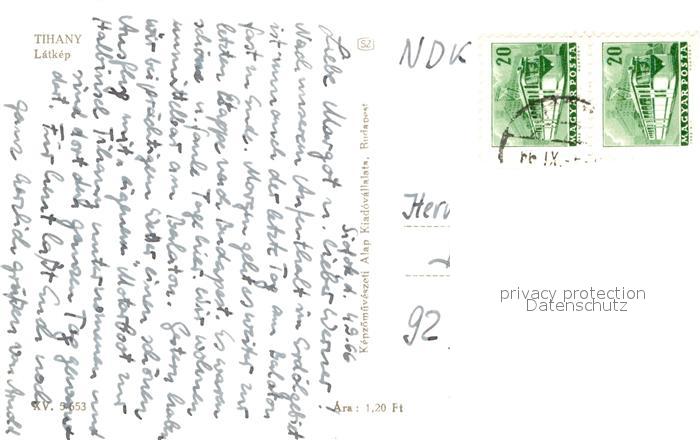 TIHANY
Látkép
SZ
Siófok, 4.9.66
Liebe Margot u. lieber Werner!
Nach unserem Aufenthalt in
ist nun auch der letzte Tag am Balaton
fast zu Ende. Morgen geht es weiter zur
letzten Etappe nach Budapest. Es waren
schöne u. faule Tage hier, wir wohnen
unmittelbar am Balaton. Gestern haben
wir bei prächtigem Wetter einen schönen
Ausflug mit Motorboot zur
Halbinsel Tihany unternommen und
sind dort den ganzen Tag gewesen
Für heute laßt Euch noch
ganz herzlich grüßen von
Képzőművészeti Alap Kiadóvállalata, Budapest
XV. 5653
Ára: 1,20 Ft
NDK
20 MAGYAR POSTA
20 MAGYAR POSTA
66. IX.
92
privacy protection
Datenschutz